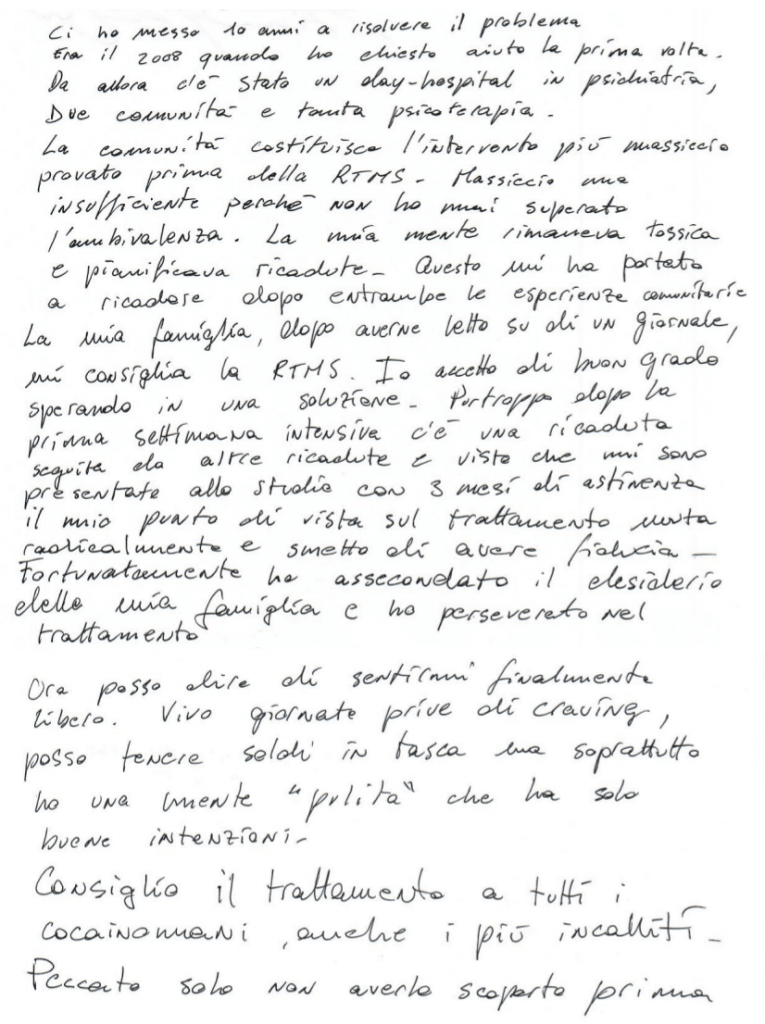 Ci ho messo 10 anni a risolvere il problema
Era il 2008 quando ho chiesto aiuto la prima volta.
Da allora c'è stato un day-hospital in psichiatria,
Due comunità e tanta psicoterapia.
La comunità costituisce l'intervento più massiccio
provato prima della RTMS - Massiccio ma
insufficiente perché non ho mai superato
l'ambivalenza. La mia mente rimaneva tossica
e pianificava ricadute - Questo mi ha portato
a ricadere dopo entrambe le esperienze comunitarie
La mia famiglia, dopo averne letto su di un giornale,
mi consiglia la RTMS. Io accetto di buon grado
sperando in una soluzione - Purtroppo dopo la
prima settimana intensiva c'è una ricaduta
seguita da altre ricadute e visto che mi sono
presentato allo studio con 3 mesi di astinenza
il mio punto di vista sul trattamento muta
radicalmente e smetto di avere fiducia -
Fortunatamente ho assecondato il desiderio
della mia famiglia e ho perseverato nel
trattamento
Ora posso dire di sentirmi finalmente
libero. Vivo giornate prive di craving,
posso tenere soldi in tasca ma soprattutto
ho una mente "pulita" che ha solo
buone intenzioni -
Consiglio il trattamento a tutti i
cocainomani, anche i più incalliti -
Peccato solo non averlo scoperto prima